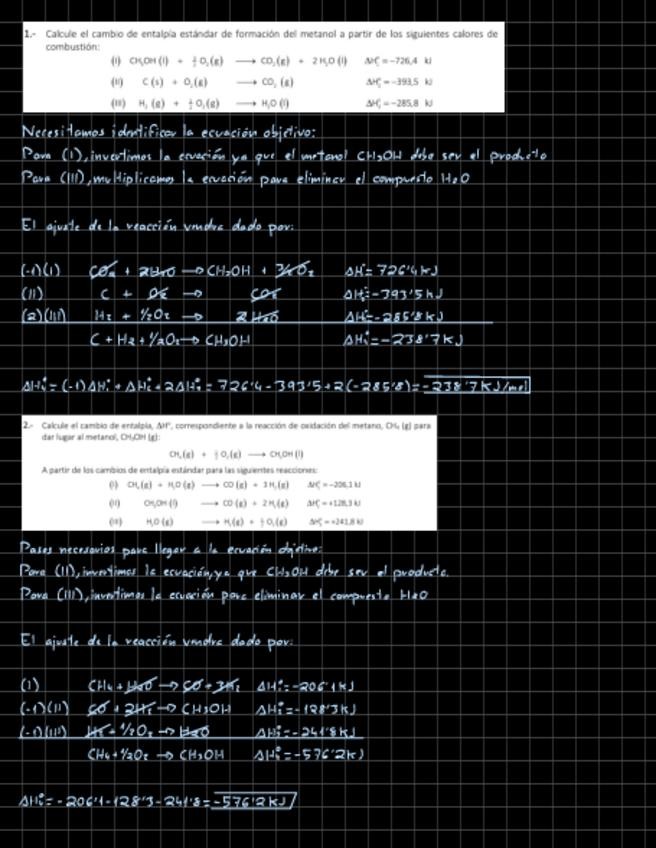 1.- Calcule el cambio de entalpía estándar de formación del metanol a partir de los siguientes calores de
combustión:
(I) CH₃OH (l) + 3/2 O₂(g) ⟶ CO₂(g) + 2 H₂O (l) ΔH₁° = -726,4 kJ
(II) C (s) + O₂(g) ⟶ CO₂ (g) ΔH₂° = -393,5 kJ
(III) H₂ (g) + ½ O₂(g) ⟶ H₂O (l) ΔH₃° = -285,8 kJ
Necesitamos identificar la ecuación objetivo:
Para (I), invertimos la ecuación ya que el metanol CH₃OH debe ser el producto
Para (III), multiplicamos la ecuación para eliminar el compuesto H₂O
El ajuste de la reacción vendra dado por:
(-1)(I) CO₂ + 2H₂O → CH₃OH + 3/2O₂ ΔH°= 726'4 kJ
(II) C + O₂ → CO₂ ΔH°=-393'5 kJ
(2)(III) H₂ + ½O₂ → 2 H₂O ΔH°=-285'8 kJ
C + H₂ + ½O₂ → CH₃OH ΔH°=-238'7 kJ
ΔH° = (-1)ΔH° + ΔH° + 2ΔH° = 726'4 - 393'5 + 2(-285'8) = -238'7 kJ/mol
2.- Calcule el cambio de entalpía, ΔH°, correspondiente a la reacción de oxidación del metano, CH₄ (g) para
dar lugar al metanol, CH₃OH (g):
CH₄ (g) + ½ O₂(g) ⟶ CH₃OH (l)
A partir de los cambios de entalpía estándar para las siguientes reacciones:
(I) CH₄(g) + H₂O (g) ⟶ CO (g) + 3 H₂(g) ΔH₁° = -206,1 kJ
(II) CH₃OH (l) ⟶ CO (g) + 2 H₂(g) ΔH₂° = +128,3 kJ
(III) H₂O (g) ⟶ H₂(g) + ½ O₂(g) ΔH₃° = +241,8 kJ
Pasos necesarios para llegar a la ecuación objetivo:
Para (II), invertimos la ecuación, ya que CH₃OH debe ser el producto.
Para (III), invertimos la ecuación para eliminar el compuesto H₂O
El ajuste de la reacción vendra dado por:
(I) CH₄ + H₂O → CO + 3H₂ ΔH°=-206'1 kJ
(-1)(II) CO + 2H₂ → CH₃OH ΔH°=-128'3 kJ
(-1)(III) H₂ + ½O₂ → H₂O ΔH°=-241'8 kJ
CH₄ + ½O₂ → CH₃OH ΔH°=-576'2 kJ
ΔH° = -206'1 - 128'3 - 241'8 = -576'2 kJ